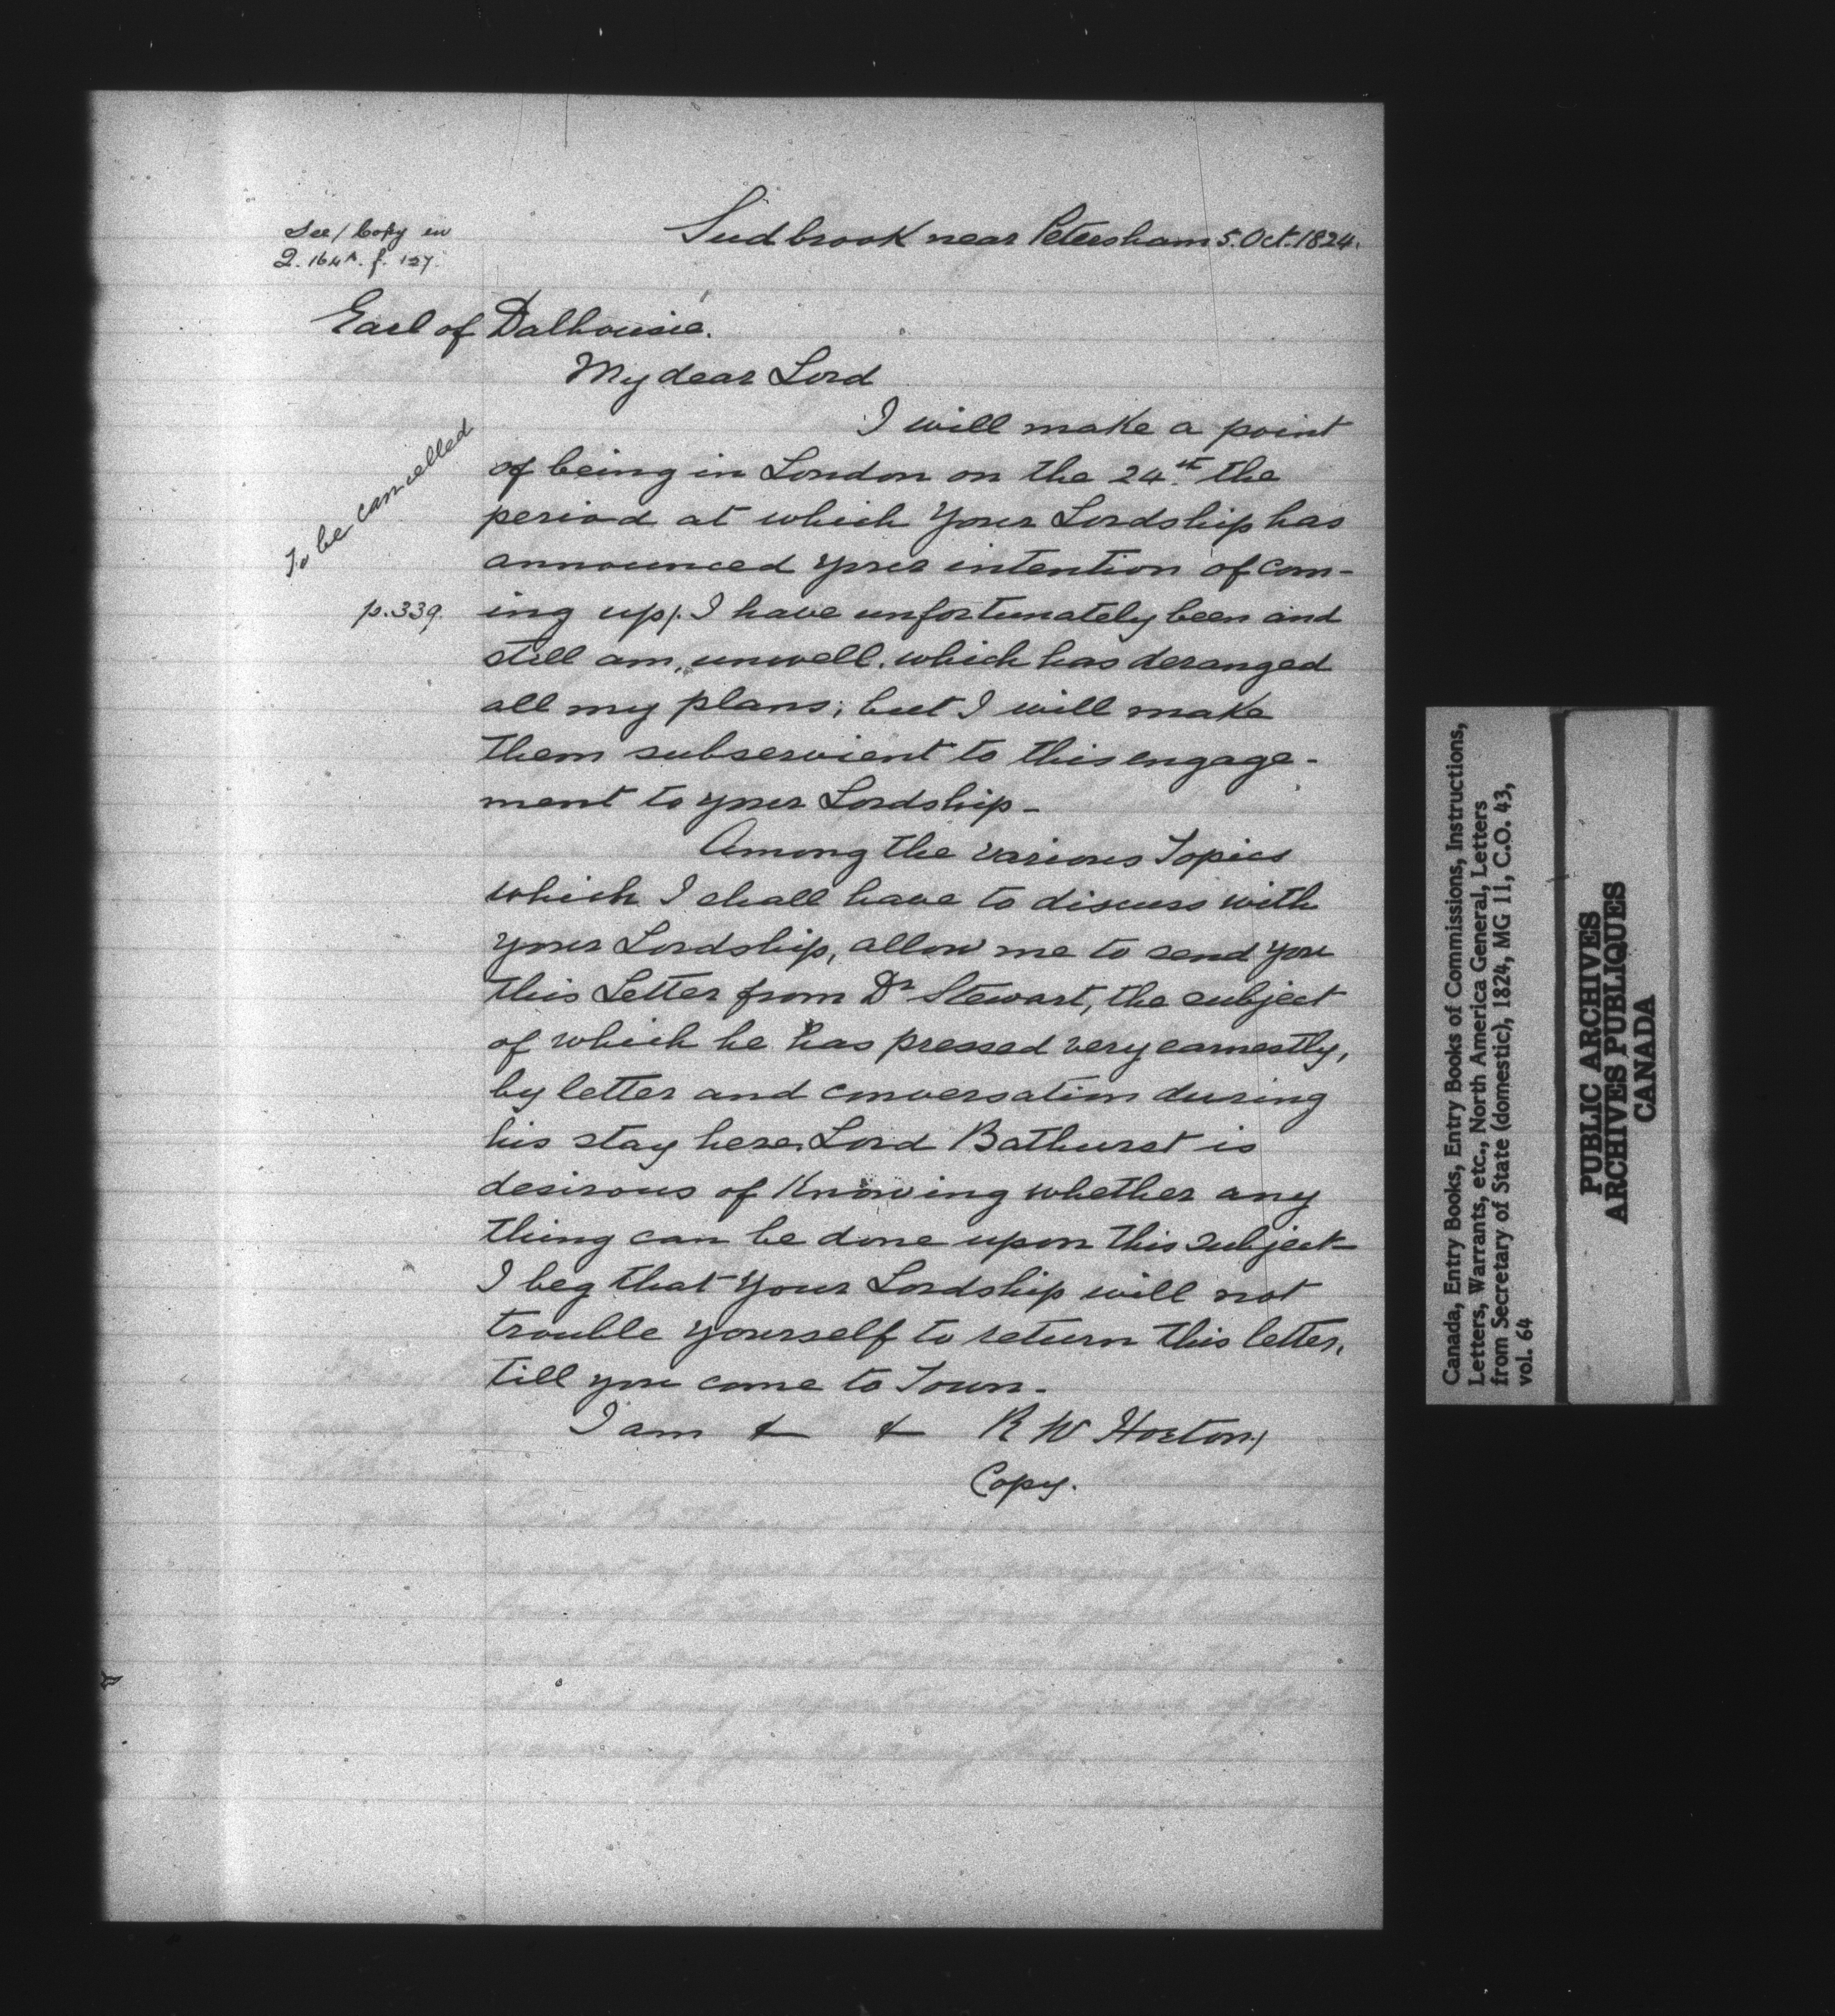 See / Copy in
Q. 164A. f. 127.
Sudbrook near Petersham 5. Oct. 1824.
Earl of Dalhousie.
My dear Lord
I will make a point
To be cancelled
of being in London on the 24th. the
period at which Your Lordship has
announced your intention of com-
p. 339.
ing up/. I have unfortunately been and
still am, unwell. which has deranged
all my plans; but I will make
them subservient to this engage-
ment to your Lordship -
Among the various Topics
which I shall have to discuss with
your Lordship, allow me to send you
this Letter from Dr Stewart, the subject
of which he has pressed very earnestly,
by letter and conversation during
his stay here. Lord Bathurst is
desirous of Knowing whether any
thing can be done upon this subject -
I beg that Your Lordship will not
trouble yourself to return this letter,
till you come to Town.
I am & & R W Horton/
Copy.
Canada, Entry Books, Entry Books of Commissions, Instructions,
Letters, Warrants, etc., North America General, Letters
from Secretary of State (domestic), 1824, MG 11, C.O. 43,
vol. 64
PUBLIC ARCHIVES
ARCHIVES PUBLIQUES
CANADA